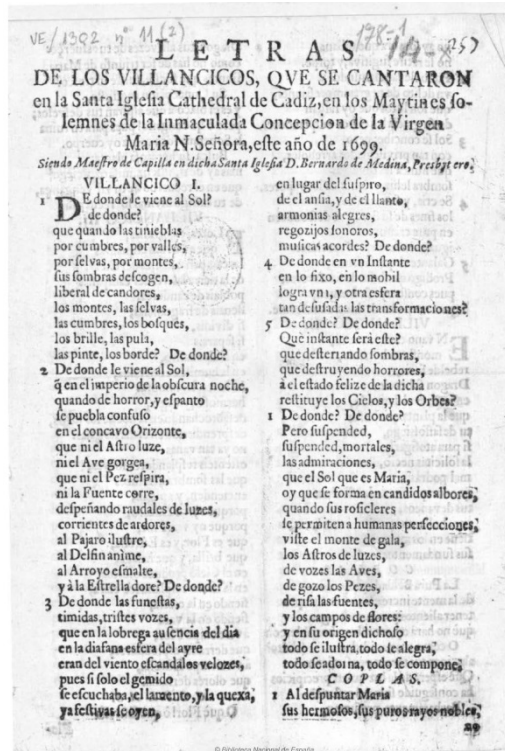 VE/1302 nº 11(2)
178-1
L E T R A S
DE LOS VILLANCICOS, QVE SE CANTARON
en la Santa Iglesia Cathedral de Cadiz, en los Maytines so-
lemnes de la Inmaculada Concepcion de la Virgen
Maria N. Señora, este año de 1699.
Siendo Maestro de Capilla en dicha Santa Iglesia D. Bernardo de Medina, Presbytero.
VILLANCICO I.
1 DE donde le viene al Sol?
de donde?
que quando las tinieblas
por cumbres, por valles,
por selvas, por montes,
sus sombras descogen,
liberal de candores,
los montes, las selvas,
las cumbres, los bosques,
los brille, las pula,
las pinte, los borde? De donde?
2 De donde le viene al Sol,
q̃ en el imperio de la obscura noche,
quando de horror, y espanto
se puebla confuso
en el concavo Orizonte,
que ni el Astro luze,
ni el Ave gorgea,
que ni el Pez respira,
ni la Fuente corre,
despeñando raudales de luzes,
corrientes de ardores,
al Pajaro ilustre,
al Delfin anime,
al Arroyo esmalte,
y à la Estrella dore? De donde?
3 De donde las funestas,
timidas, tristes vozes,
que en la lobrega ausencia del dia
en la diafana esfera del ayre
eran del viento escandalos velozes,
pues si solo el gemido
se escuchaba, el lamento, y la quexa,
ya festivas se oyen,
en lugar del suspiro,
de el ansia, y de el llanto,
armonias alegres,
regozijos sonoros,
musicas acordes? De donde?
4 De donde en vn Instante
en lo fixo, en lo mobil
logra vna, y otra esfera
tan desusadas transformaciones?
5 De donde? De donde?
Que instante serà este?
que desterrando sombras,
que destruyendo horrores,
à el estado felize de la dicha
restituye los Cielos, y los Orbes?
1 De donde? De donde?
Pero suspended,
suspended, mortales,
las admiraciones,
que el Sol que es Maria,
oy que se forma en candidos albores,
quando sus rosicleres
se permiten a humanas persecciones,
viste el monte de gala,
los Astros de luzes,
de vozes las Aves,
de gozo los Pezes,
de risa las fuentes,
y los campos de flores:
y en su origen dichoso
todo se ilustra, todo se alegra,
todo se adorna, todo se compone,
C O P L A S.
1 Al despuntar Maria
sus hermosos, sus puros rayos nobles,
© Biblioteca Nacional de España